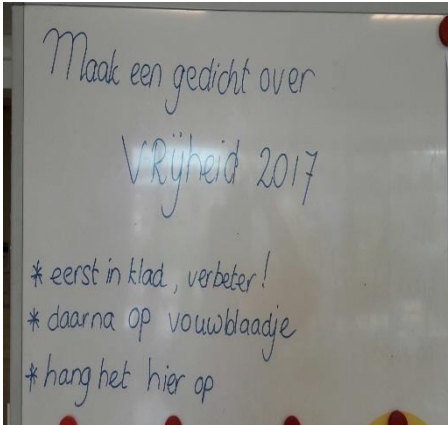 Maak een gedicht over
VRijheid 2017
* eerst in klad, verbeter!
* daarna op vouwblaadje
* hang het hier op